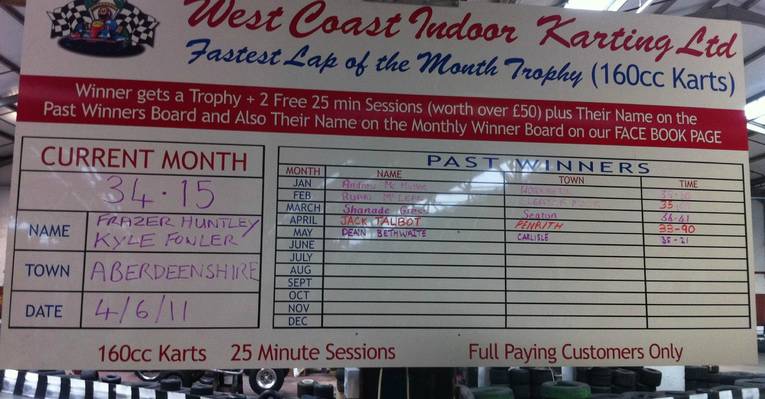 West Coast Indoor Karting Ltd
Fastest Lap of the Month Trophy (160cc Karts)
Winner gets a Trophy + 2 Free 25 min Sessions (worth over £50) plus Their Name on the
Past Winners Board and Also Their Name on the Monthly Winner Board on our FACE BOOK PAGE
CURRENT MONTH
34.15
NAME FRAZER HUNTLEY
KYLE FOWLER
TOWN ABERDEENSHIRE
DATE 4/6/11
PAST WINNERS
MONTH NAME TOWN TIME
JAN Andrew
FEB
MARCH Shanade Seaton
APRIL JACK TALBOT PENRITH 33-90
MAY DEAN BETHWAITE CARLISLE 35-21
JUNE
JULY
AUG
SEPT
OCT
NOV
DEC
160cc Karts 25 Minute Sessions Full Paying Customers Only